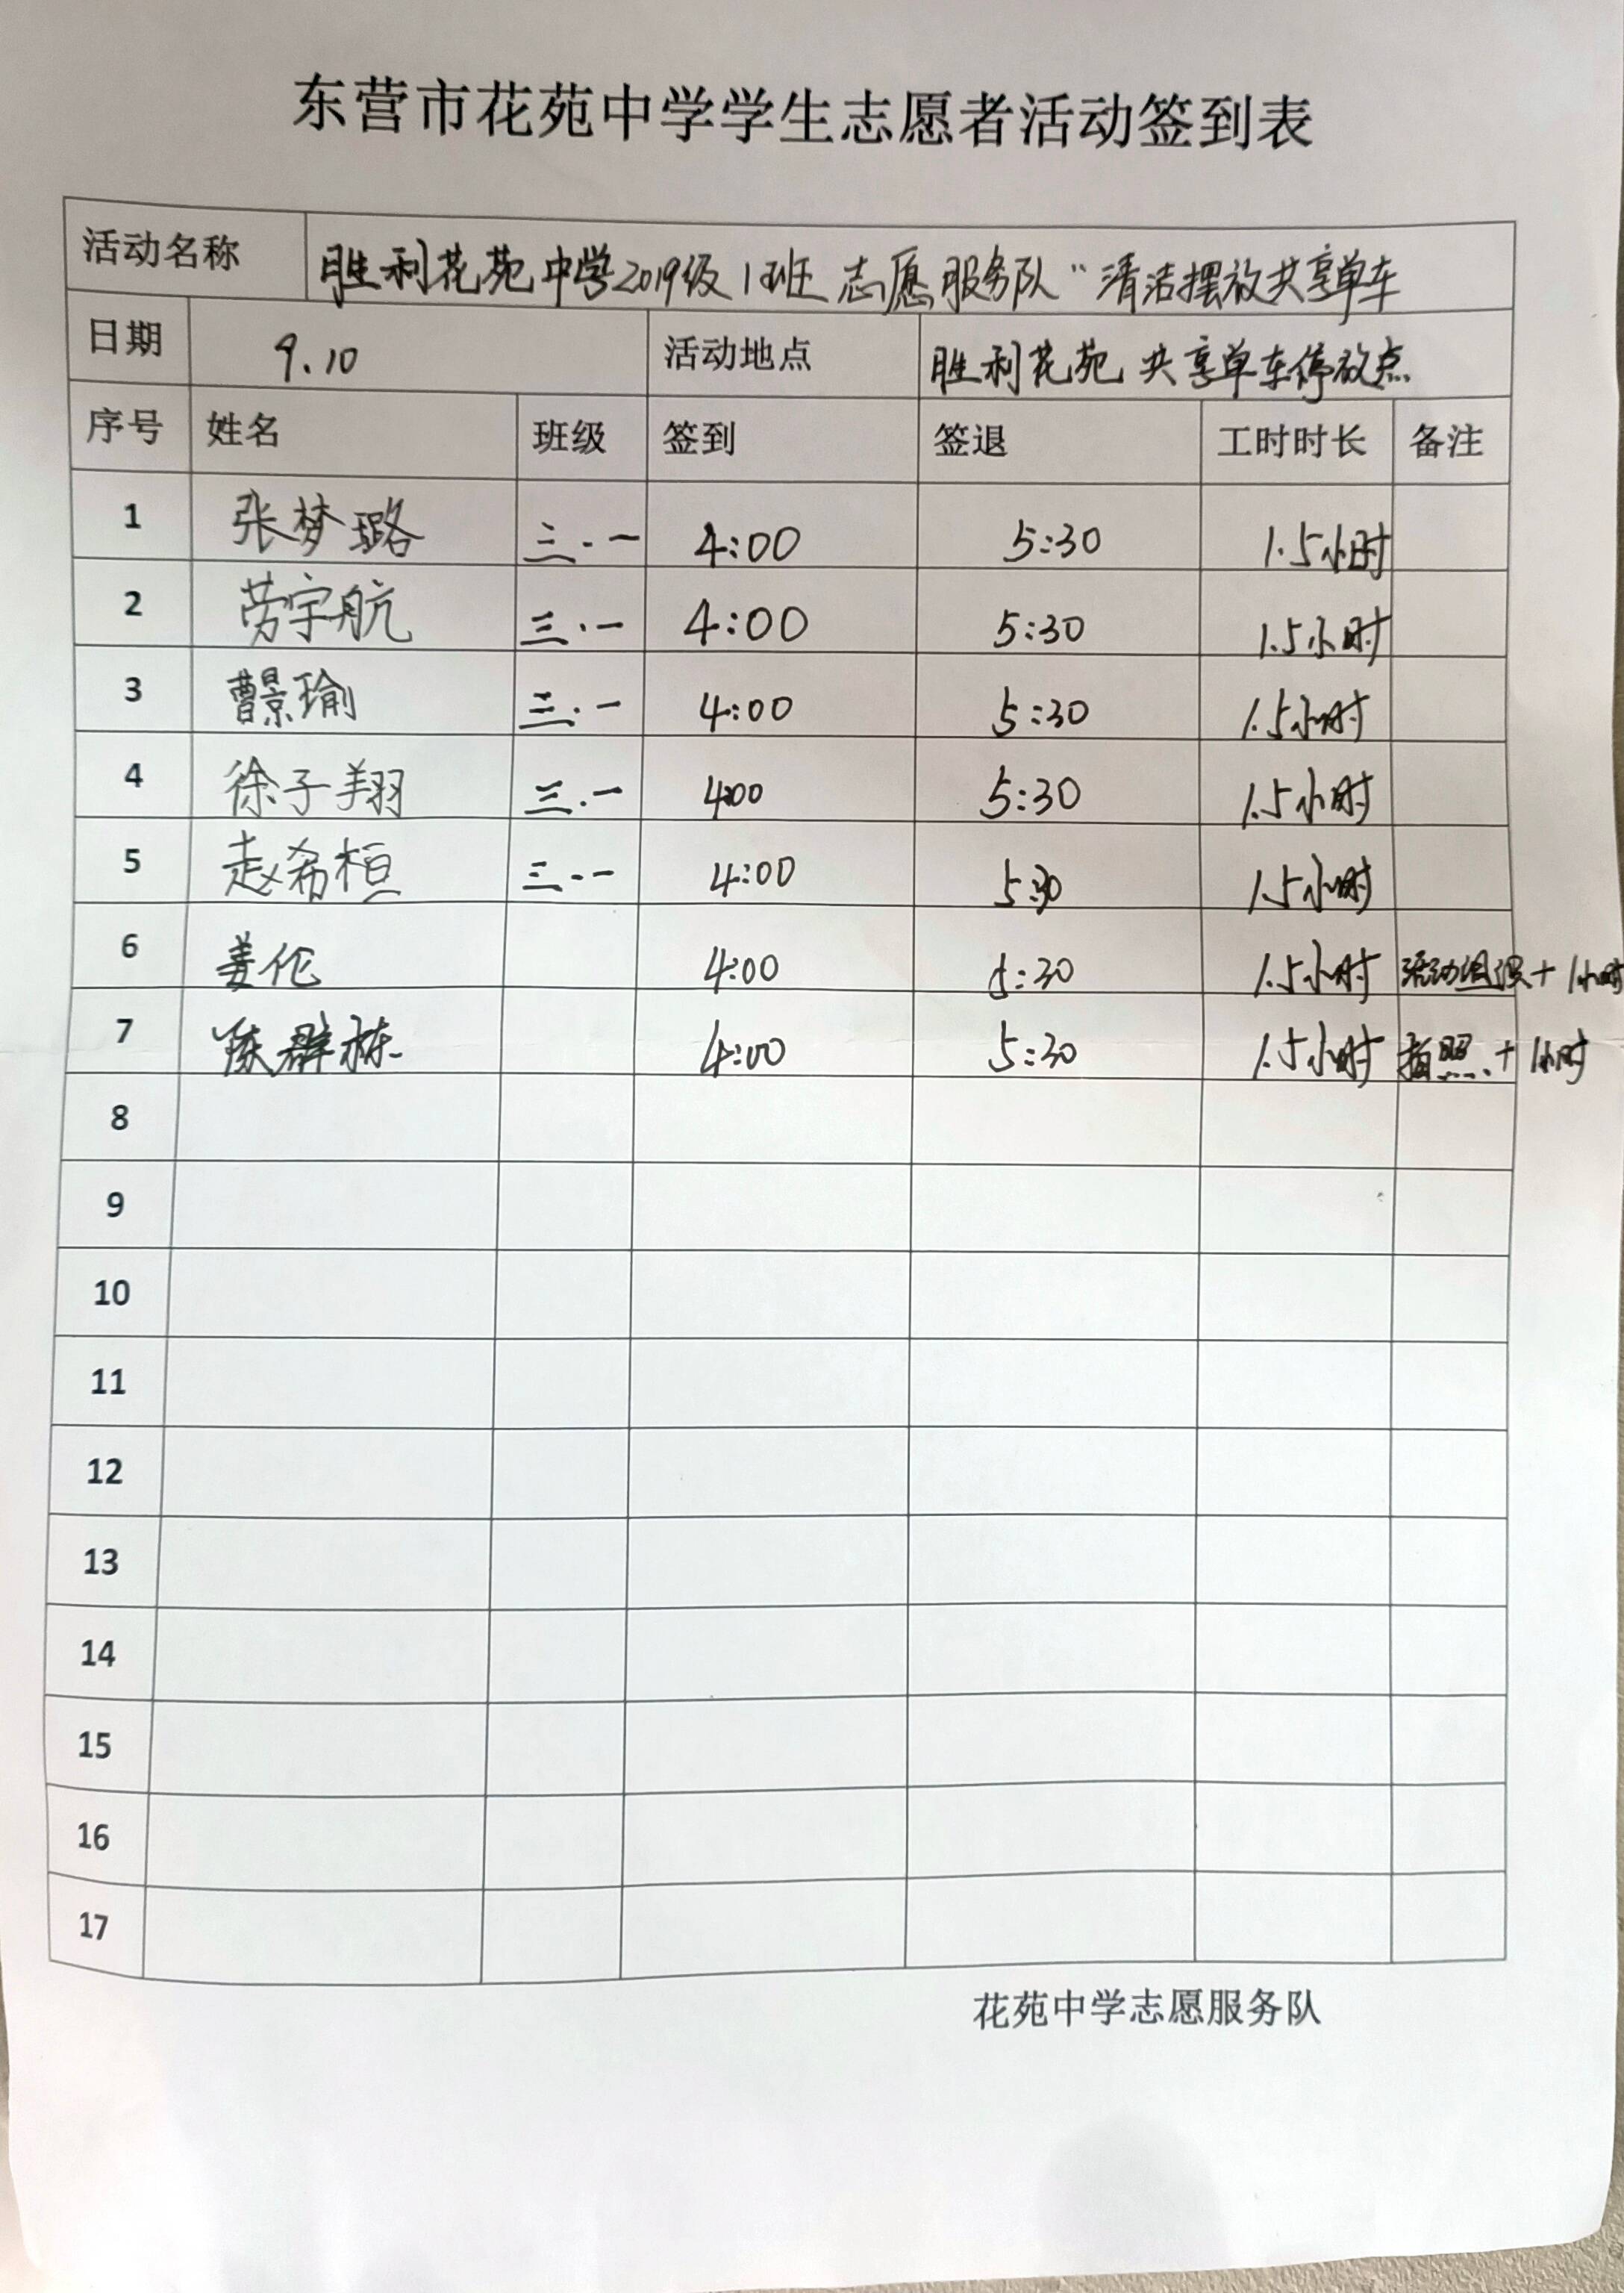 东营市花苑中学学生志愿者活动签到表
活动名称 胜利花苑中学2019级1班志愿服务队“清洁摆放共享单车
日期 9.10 活动地点 胜利花苑 共享单车停放点
序号 姓名 班级 签到 签退 工时时长 备注
1 张梦璐 三.一 4:00 5:30 1.5小时
2 劳宇航 三.一 4:00 5:30 1.5小时
3 曹景瑜 三.一 4:00 5:30 1.5小时
4 徐子翔 三.一 4:00 5:30 1.5小时
5 赵希桓 三.一 4:00 5:30 1.5小时
6 姜伦 4:00 5:30 1.5小时 活动组织+1小时
7 陈群栋 4:00 5:30 1.5小时 拍照.+1小时
8
9
10
11
12
13
14
15
16
17
花苑中学志愿服务队